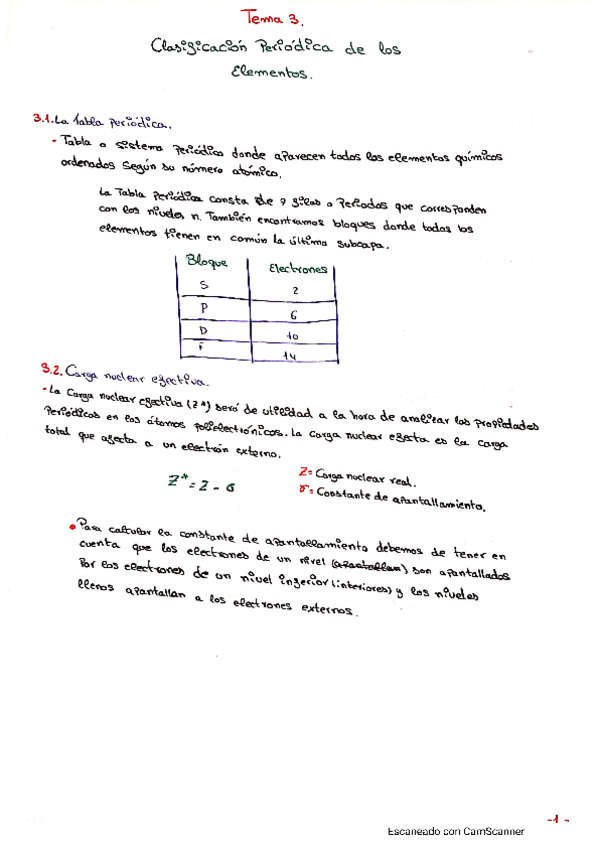 Tema 3.
Clasificación Periódica de los
Elementos.
3.1. La Tabla periódica.
- Tabla o sistema Periódico donde aparecen todos los elementos químicos
ordenados según su número atómico.
La Tabla Periódica consta de 7 filas o Periodos que corresponden
con los niveles n. También encontramos bloques donde todos los
elementos tienen en común la última subcapa.
Bloque Electrones
S 2
P 6
D 10
F 14
3.2. Carga nuclear efectiva.
- La Carga nuclear efectiva (Z*) será de utilidad a la hora de analizar las propiedades
Periódicas en los átomos polielectrónicos. La carga nuclear efecta es la carga
total que afecta a un electrón externo.
Z* = Z - σ
Z = Carga nuclear real.
σ = Constante de apantallamiento.
• Para calcular la constante de apantallamiento debemos de tener en
cuenta que los electrones de un nivel (apantallan) son apantallados
Por los electrones de un nivel inferior (interiores) y los niveles
llenos apantallan a los electrones externos.
-1-
Escaneado con CamScanner